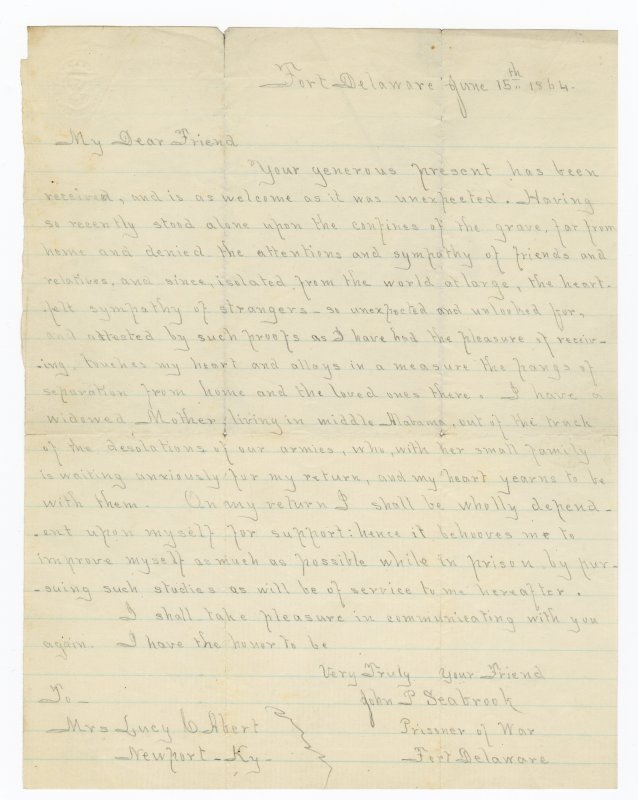 Fort Delaware June 15th 1864.
My Dear Friend
Your generous present has been
received, and is as welcome as it was unexpected. Having
so recently stood alone upon the confines of the grave, far from
home and denied the attentions and sympathy of friends and
relatives, and since, isolated from the world at large, the heart-
-felt sympathy of strangers - so unexpected and unlooked for,
and attested by such proofs as I have had the pleasure of receiv-
-ing, touches my heart and allays in a measure the pangs of
separation from home and the loved ones there. I have a
widowed Mother, living in middle Alabama, out of the track
of the desolations of our armies, who, with her small family
is waiting anxiously for my return, and my heart yearns to be
with them. On my return I shall be wholly depend-
-ent upon myself for support: hence it behooves me to
improve myself as much as possible while in prison, by pur-
-suing such studies as will be of service to me hereafter.
I shall take pleasure in communicating with you
again. I have the honor to be
Very Truly Your Friend
John P Seabrook
Prisoner of War
Fort Delaware
To -
Mrs Lucy
Newport - Ky -